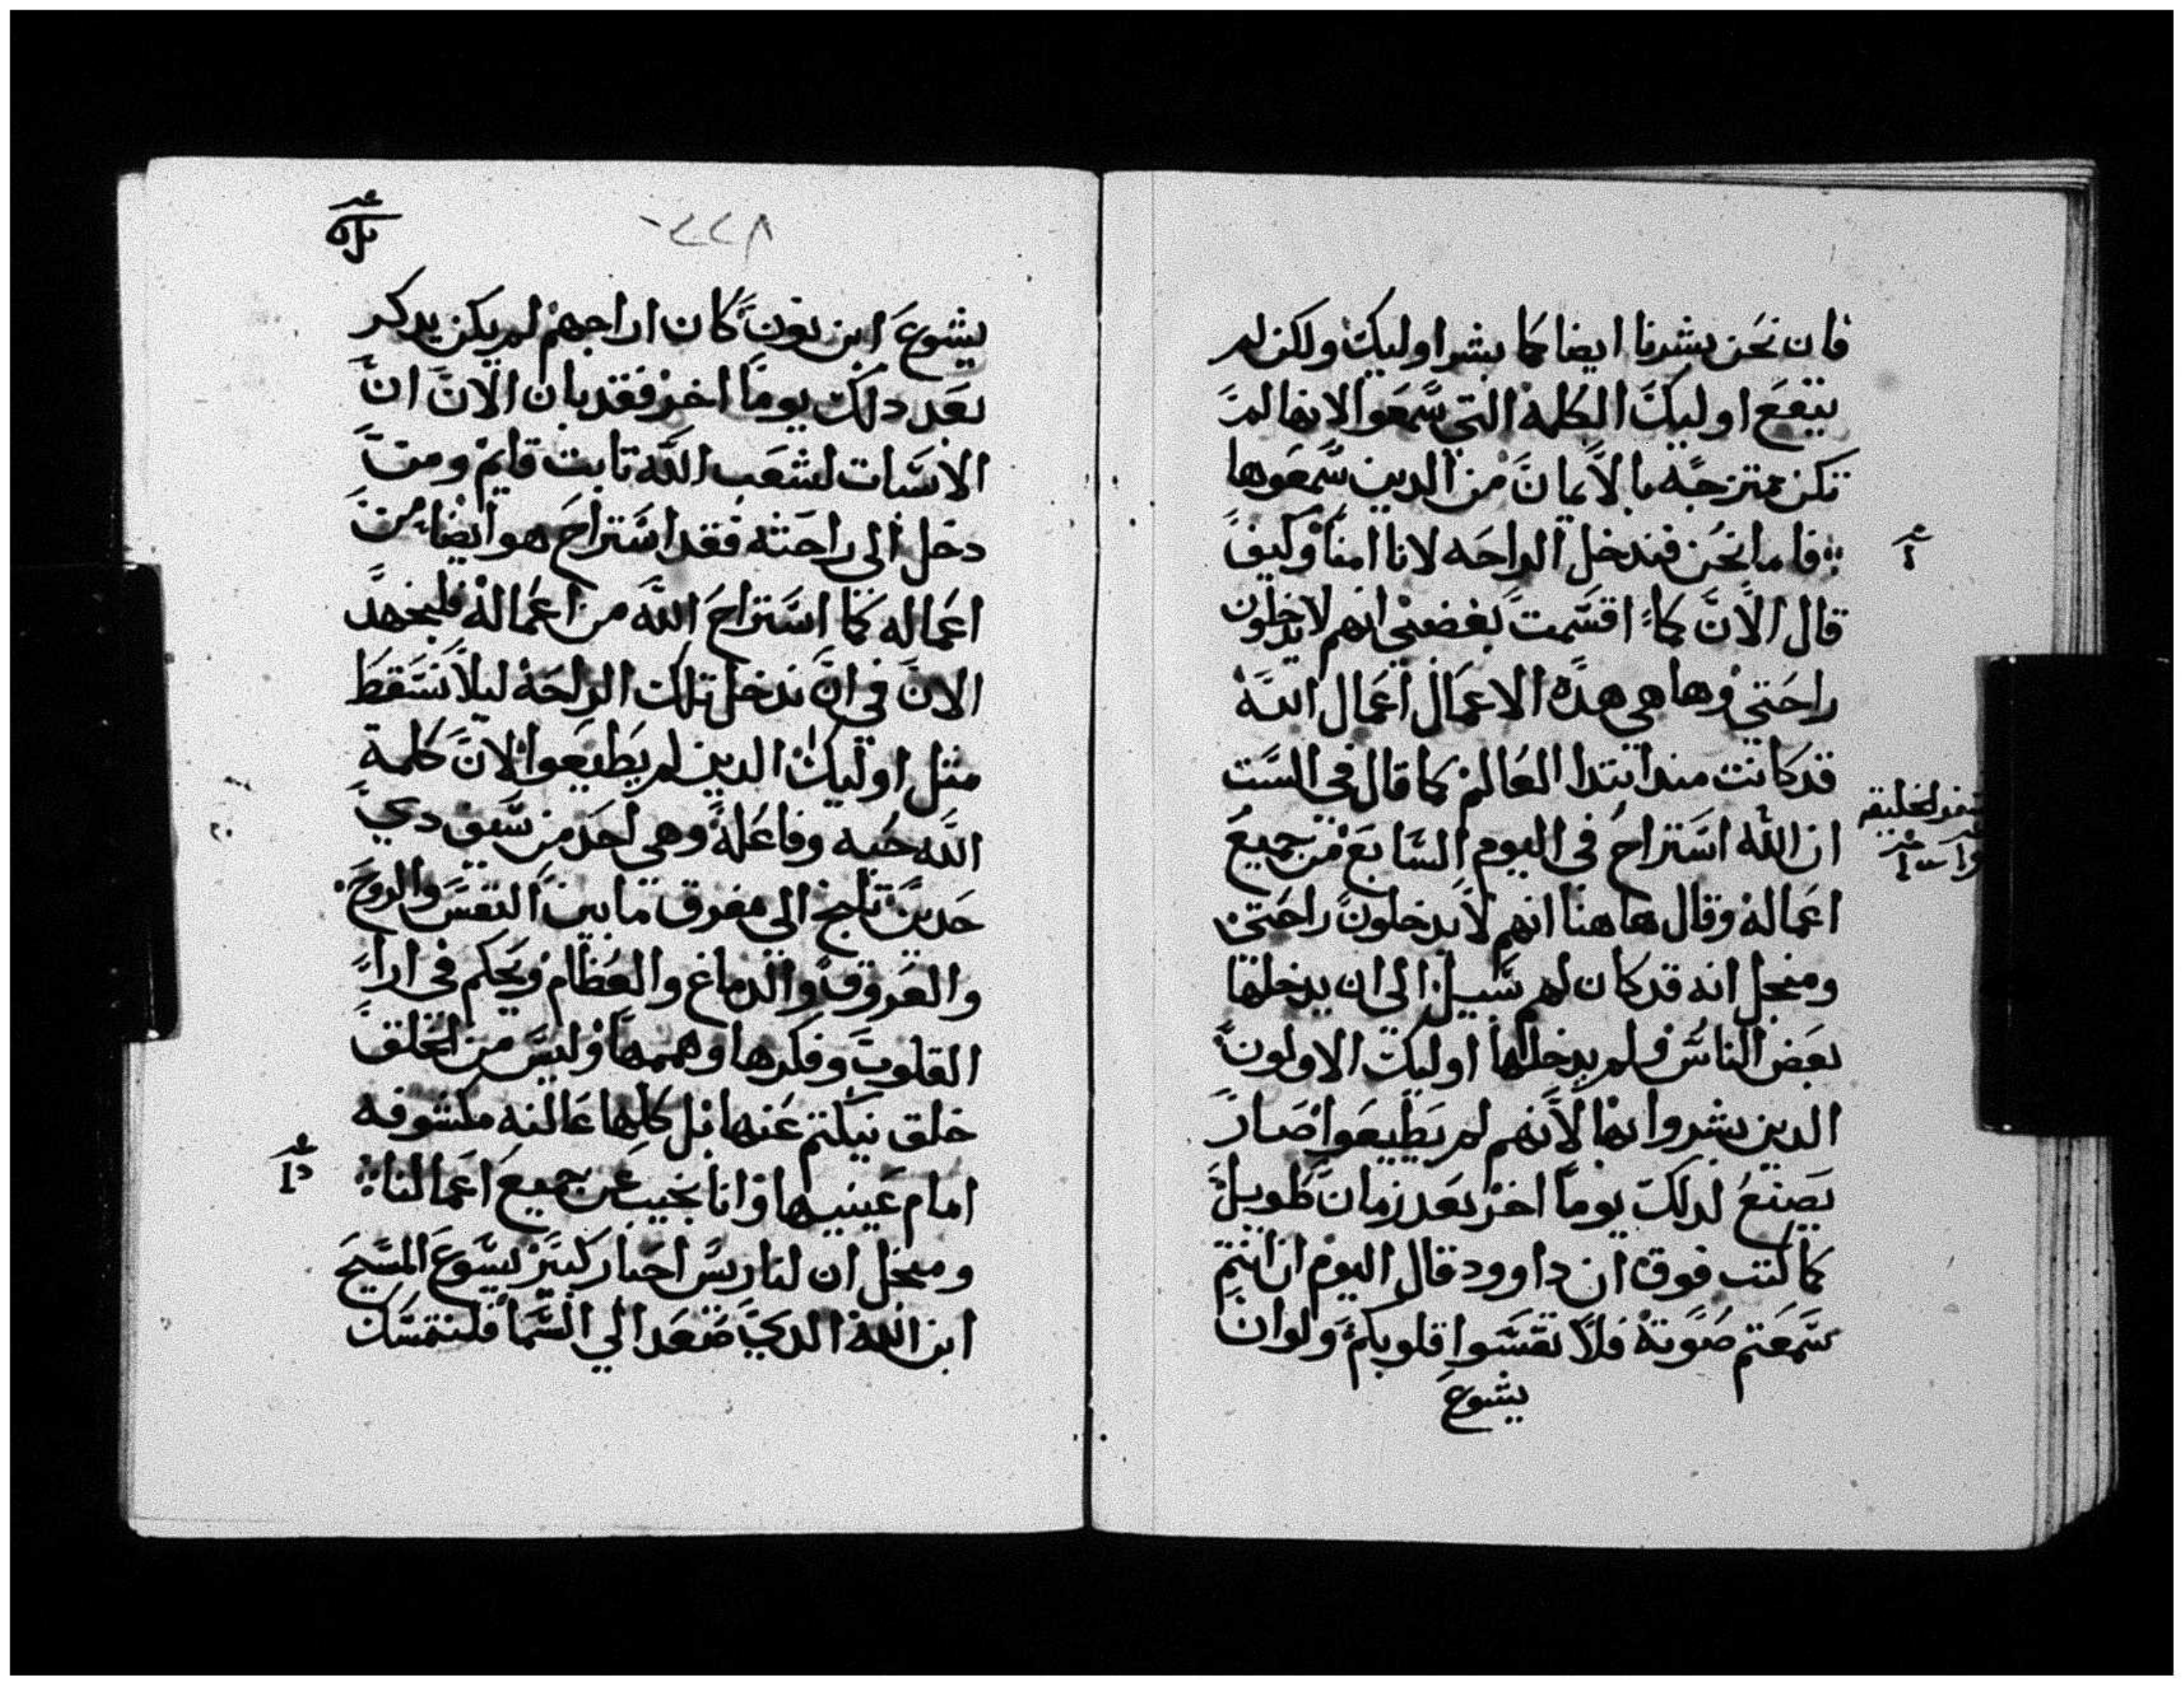 فان نحن بشرنا ايضا كما بشر اوليك ولكن لم
ينفع اوليك الكلمة التي سمعوا لانها لم
تكن ممتزجه بالايمان من الدين سمعوها
فاما نحن فندخل الراحه لانا امنا وكيف
قال الان كما اقسمت بغضبي انهم لا يدخلون
راحتي وها هي هده الاعمال اعمال الله
قد كانت مند ابتدا العالم كما قال في السبت
ان الله استراح في اليوم السابع من جميع
اعماله وقال هاهنا انهم لا يدخلون راحتي
ومنجل انه قد كان لهم سبيل الى ان يدخلها
بعض الناس ولم يدخلها اوليك الاولون
الدين بشروا بها لانهم لم يطيعوا صار
يصنع لدلك يوما اخر بعد زمان طويل
كما كتب فوق ان داوود قال اليوم ان انتم
سمعتم صوته فلا تقسوا قلوبكم ولو ان
يشوع
سفر الخليقه
٢٢٨
يشوع ابن نون كان اراحهم لم يكن يدكر
بعد دلك يوما اخر فقد بان الان ان
الاسبات لشعب الله تابت قايم ومن
دخل الي راحته فقد استراح هو ايضا من
اعماله كما استراح الله من اعماله فليجهد
الان في ان ندخل تلك الراحة ليلا نسقط
متل اوليك الدين لم يطيعوا لان كلمة
الله حيه وفاعلة وهي احد من سيف دي
حدين تلج الي مفرق ما بين النفس والروح
والعروق والدماغ والعظام ويحكم في ارا
القلوب وفكرها وهممها وليس من الخلق
خلق يكتم عنها بل كلها عالنه مكشوفه
امام عينيها وانا نجيب عن جميع اعمالنا
ومنجل ان لنا ريس احبار كبير يسوع المسيح
ابن الله الدي صعد الي السما فلنتمسك